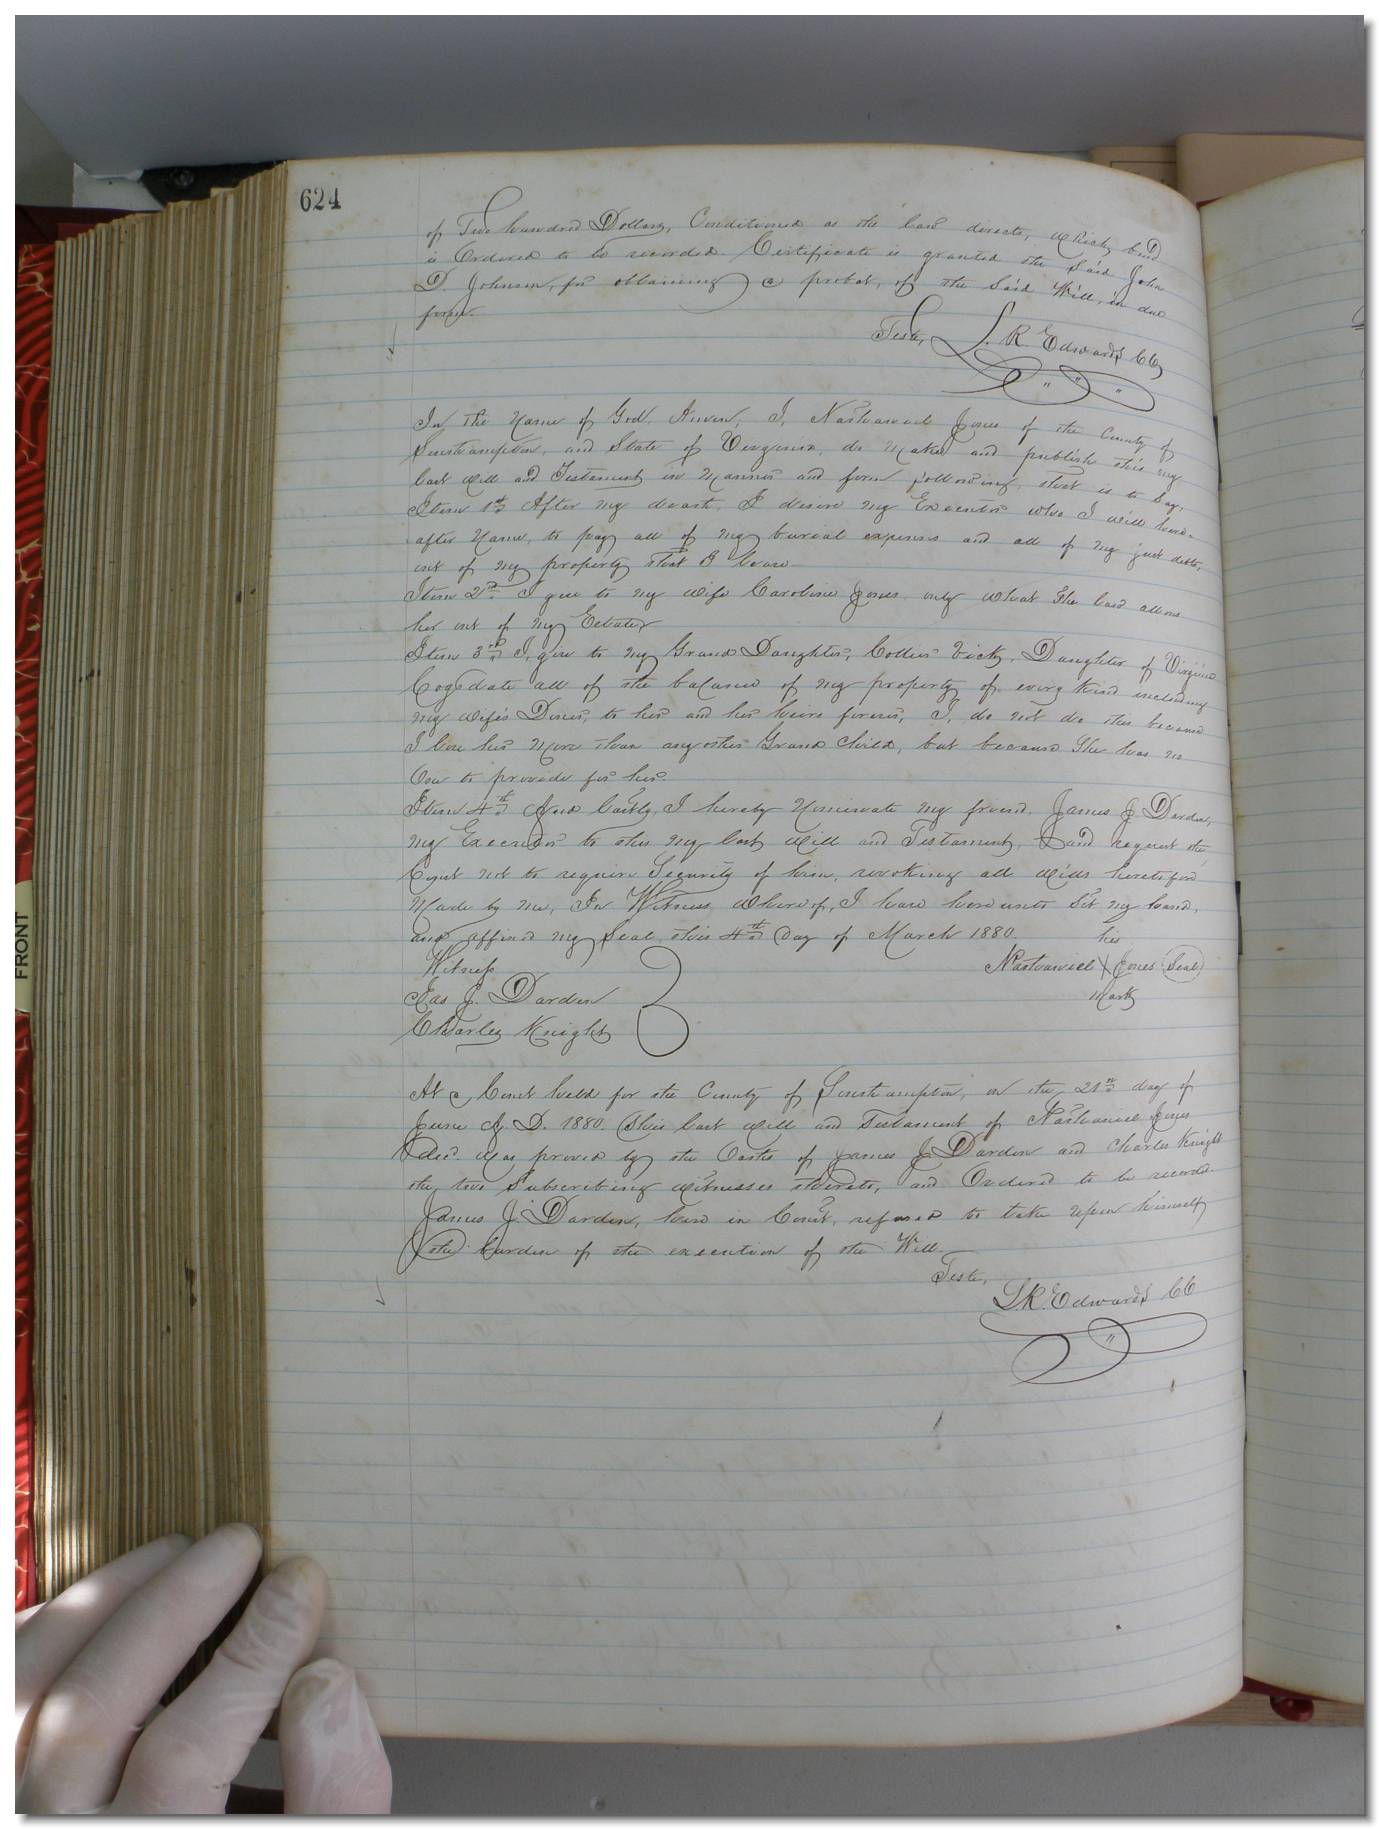 624
of Two hundred Dollars, Conditioned as the law directs, which bond
is Ordered to be recorded. Certificate is granted the said John
D. Johnson, for obtaining a probat, of the said Will, in due
form.
Teste, L. R. Edwards CC
In the Name of God, Amen, I, Nathaniel Jones of the County of
Southampton, and State of Virginia, do make and publish this my
last will and Testament in manner and form following, that is to say,
Item 1st After my death, I desire my Executor who I will here-
after Name, to pay all of my burial expenses and all of my just debts,
out of my property that I leave
Item 2nd I give to my wife Caroline Jones only what the law allows
her out of my Estate
Item 3rd I, give to my Grand Daughter, Vick, Daughter of Virginia
all of the balance of my property of every kind including
my wife's Dower, to her and her heirs forever, I, do not do this because
I love her more than any other Grand Child, but because She has no
One to provide for her.
Item 4th And lastly, I hereby Nominate my friend, James J. Darden,
my Executor to this my last will and Testament, and request the
Court not to require Security of him, revoking all wills heretofore
made by me, In Witness whereof, I have hereunto Set my hand,
and affixed my Seal, this 4th day of March 1880.
his
Nathaniel X Jones (Seal)
mark
Witness
Jas J. Darden
Charley Knight
At a Court held for the County of Southampton, on the 21st day of
June A. D. 1880. This last will and Testament of Nathaniel Jones
dec. was proved by the Oaths of James J. Darden and Charles Knight
the two Subscribing witnesses thereto, and Ordered to be recorded
James J. Darden, here in Court, refused to take upon himself
the burden of the execution of the Will.
Teste,
L.R. Edwards CC
FRONT